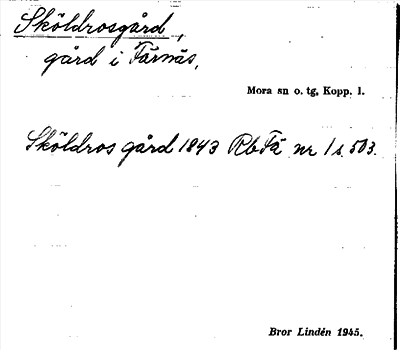 Sköldrosgård,
gård i Färnäs,
Mora sn o. tg, Kopp. l.
Sköldros gård 1843 RbFä nr 1 s. 503.
Bror Lindén 1945.